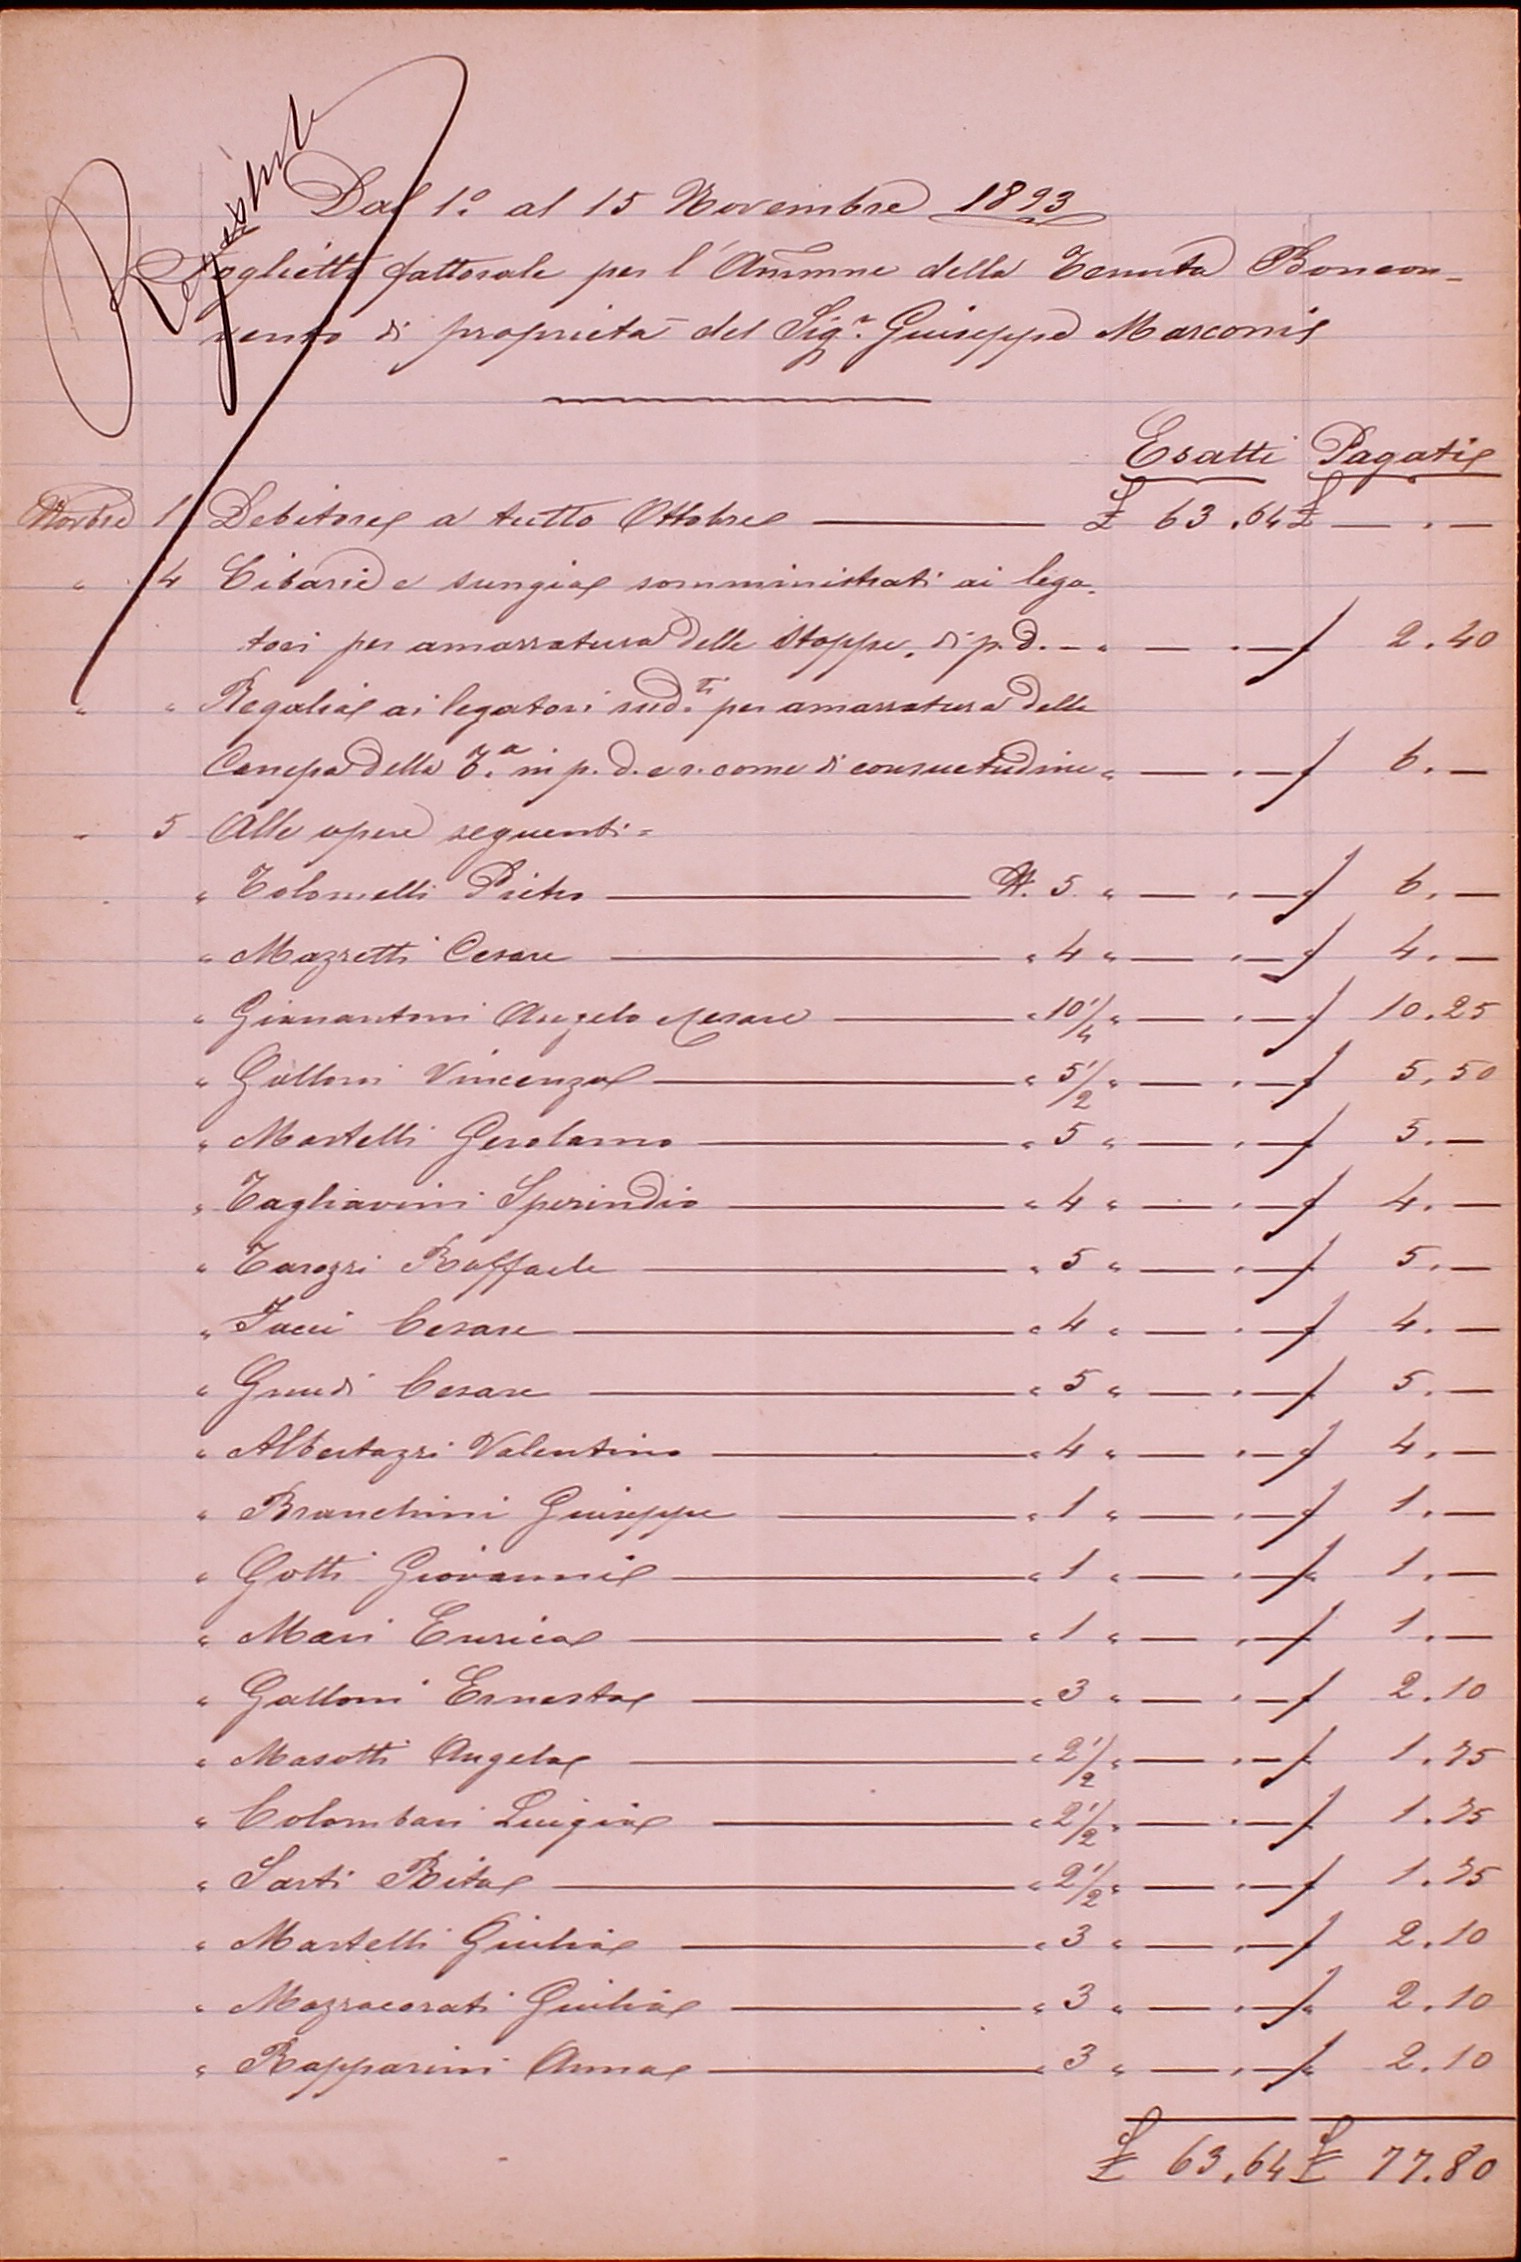 Registrato
Dal 1.o al 15 Novembre 1893
Foglietto fattorale per l'Ammne della Tenuta Boncon-
vento di proprietà del Sigr. Giuseppe Marconi
Esatti Pagati
Novbre 1 Debitore a tutto Ottobre £ 63.64 £ — . —
" 4 Cibarie e sungia somministrati ai lega-
tori per amarratura delle stoppe, di p. d. - " — . — " 2.40
" " Regalia ai legatori sud.ti per amarratura della
Canepa della T.a in p. d. e s. come di consuetudine " — . — " 6. —
" 5 Alle opere seguenti =
" Tolomelli Pietro N. 5. " — . — " 6. —
" Mazzetti Cesare " 4 " — . — " 4. —
" Gianantoni Angelo Cesare " 10 1/4 " — . — " 10.25
" Galloni Vincenzo " 5 1/2 " — . — " 5.50
" Martelli Gerolamo " 5 " — . — " 5. —
" Tagliavini Sperindio " 4 " — . — " 4. —
" Tarozzi Raffaele " 5 " — . — " 5. —
" Cesare " 4 " — . — " 4. —
" Grandi Cesare " 5 " — . — " 5. —
" Albertazzi Valentino " 4 " — . — " 4. —
" Branchini Giuseppe " 1 " — . — " 1. —
" Gotti Giovanni " 1 " — . — " 1. —
" Mari Enrica " 1 " — . — " 1. —
" Galloni Ernesta " 3 " — . — " 2.10
" Masotti Angela " 2 1/2 " — . — " 1.75
" Colombari Luigia " 2 1/2 " — . — " 1.75
" Sarti Rita " 2 1/2 " — . — " 1.75
" Martelli Giulia " 3 " — . — " 2.10
" Mazzacorati Giulia " 3 " — . — " 2.10
" Rapparini Anna " 3 " — . — " 2.10
£ 63.64 £ 77.80